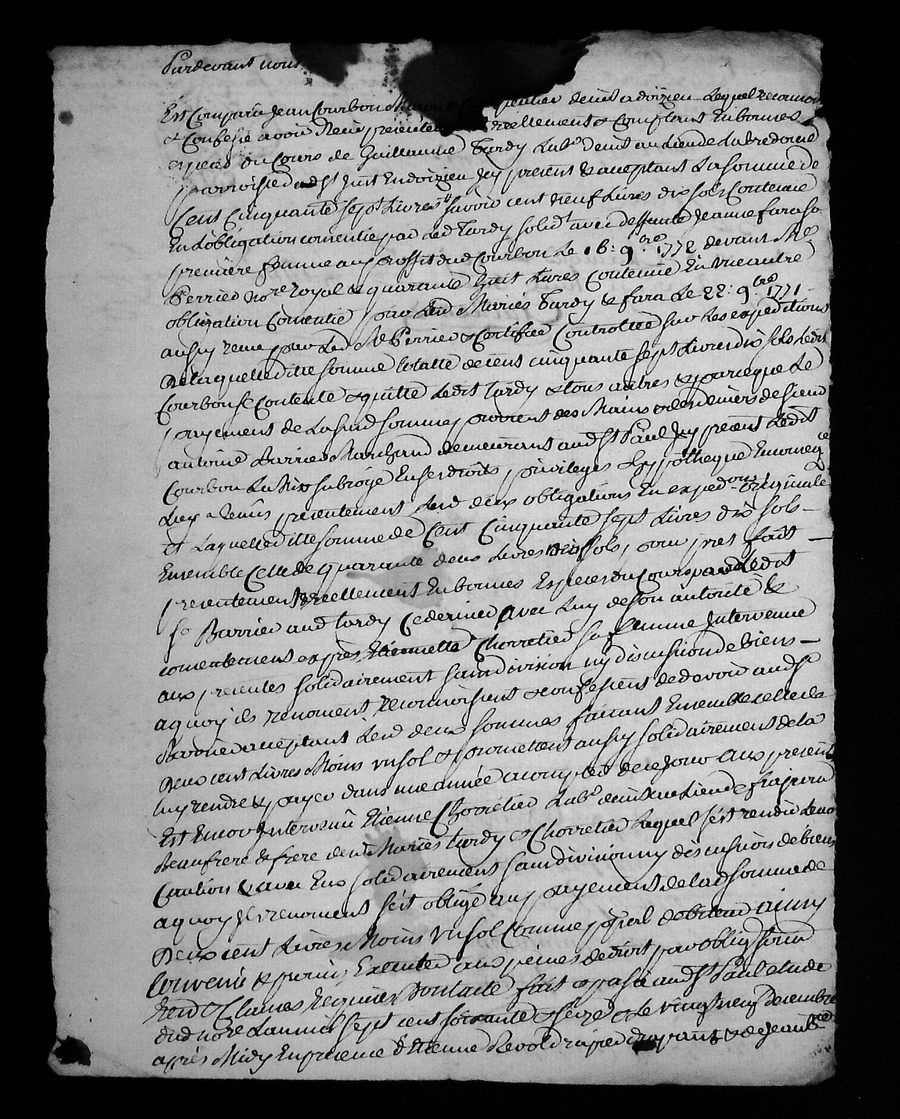 Pardevant nous
Est Comparu Jean Courbon Maitre Charpentier demt a doizieu Lequel reconnoit
& Confesse avoir Receu presentement reellement & Comptant En bonnes
especes du Cours de Guillaume Tardy Labr demt au lieu de La bredoure
parroisse dud St Just En doizieu Icy present & acceptant La somme de
Cent Cinquante sept Livres savoir cent neuf Livres dix sols Contenue
En L'obligation consentie par Led Tardy solidt avec deffunte Jeanne fara sa
premiere femme au proffit dud Courbon Le 16: 9bre 1772 devant Me
Perrier nore Royal & quarante huit Livres Contenue En une autre
obligation Consentie par Lesd Mariés Tardy & fara Le 22: 9bre 1771
aussy receue par Led Me Perrier & Certifiée Controllée sur Les expeditions
De laquelle ditte somme totalle de cent cinquante sept Livres dix sols Ledit
Courbon se Contente & quitte Ledit Tardy & tous autres & parce que Le
payement de La susd somme provient des Mains & deniers de sieur
antoine Barrier Marchand demeurant aud St Paul Icy present Ledit
Courbon La Mis & subrogé En ses droits privileges & hypotheque En consequce
Luy a Remis presentement Lesd deux obligations En expedons originale
et Laquelle ditte somme de Cent Cinquante sept Livres dix sols
Ensemble Celle de quarante deux Livres neuf sols, pour pret fait
presentement & reellement En bonnes Especes du Cours par Ledit
sr Barrier aud Tardy Ce dernier avec Luy de son autorité &
consentement exprès Etiennette Chorretier sa femme Intervenue
aux presentes solidairement sans division ny discussion de biens
a quoy ils renoncent reconnoissent & confessent de devoir aud sr
Barrier acceptant Lesd deux sommes faisant Ensemble celle de
Deux cent Livres Moins un sol & promettent aussy solidairement de la
luy rendre & payer dans une année a compter de ce jour aux presentes
Est Encor Intervenu Etienne Chorretier Labr demt au Lieu de
Beaufrere & frere desd Mariés Tardy & Chorretier Lequel s'est rendu leur
Caution & avec Eux solidairement sans division ny discussion de biens
a quoy Il renoncent s'est obligé au payement de lad somme de
Deux cent Livres Moins un sol Comme principal debiteur ainsy
Convenu & promis Executer aux peines de droit par oblig soum
Renon & Clauses Requises Dont acte fait & passé aud St Paul etude
dud nore L'an mil sept cent soixante & seize & Le vingt neuf Decembre
après Midy En presence d'Etienne Revol drapier & de Jean